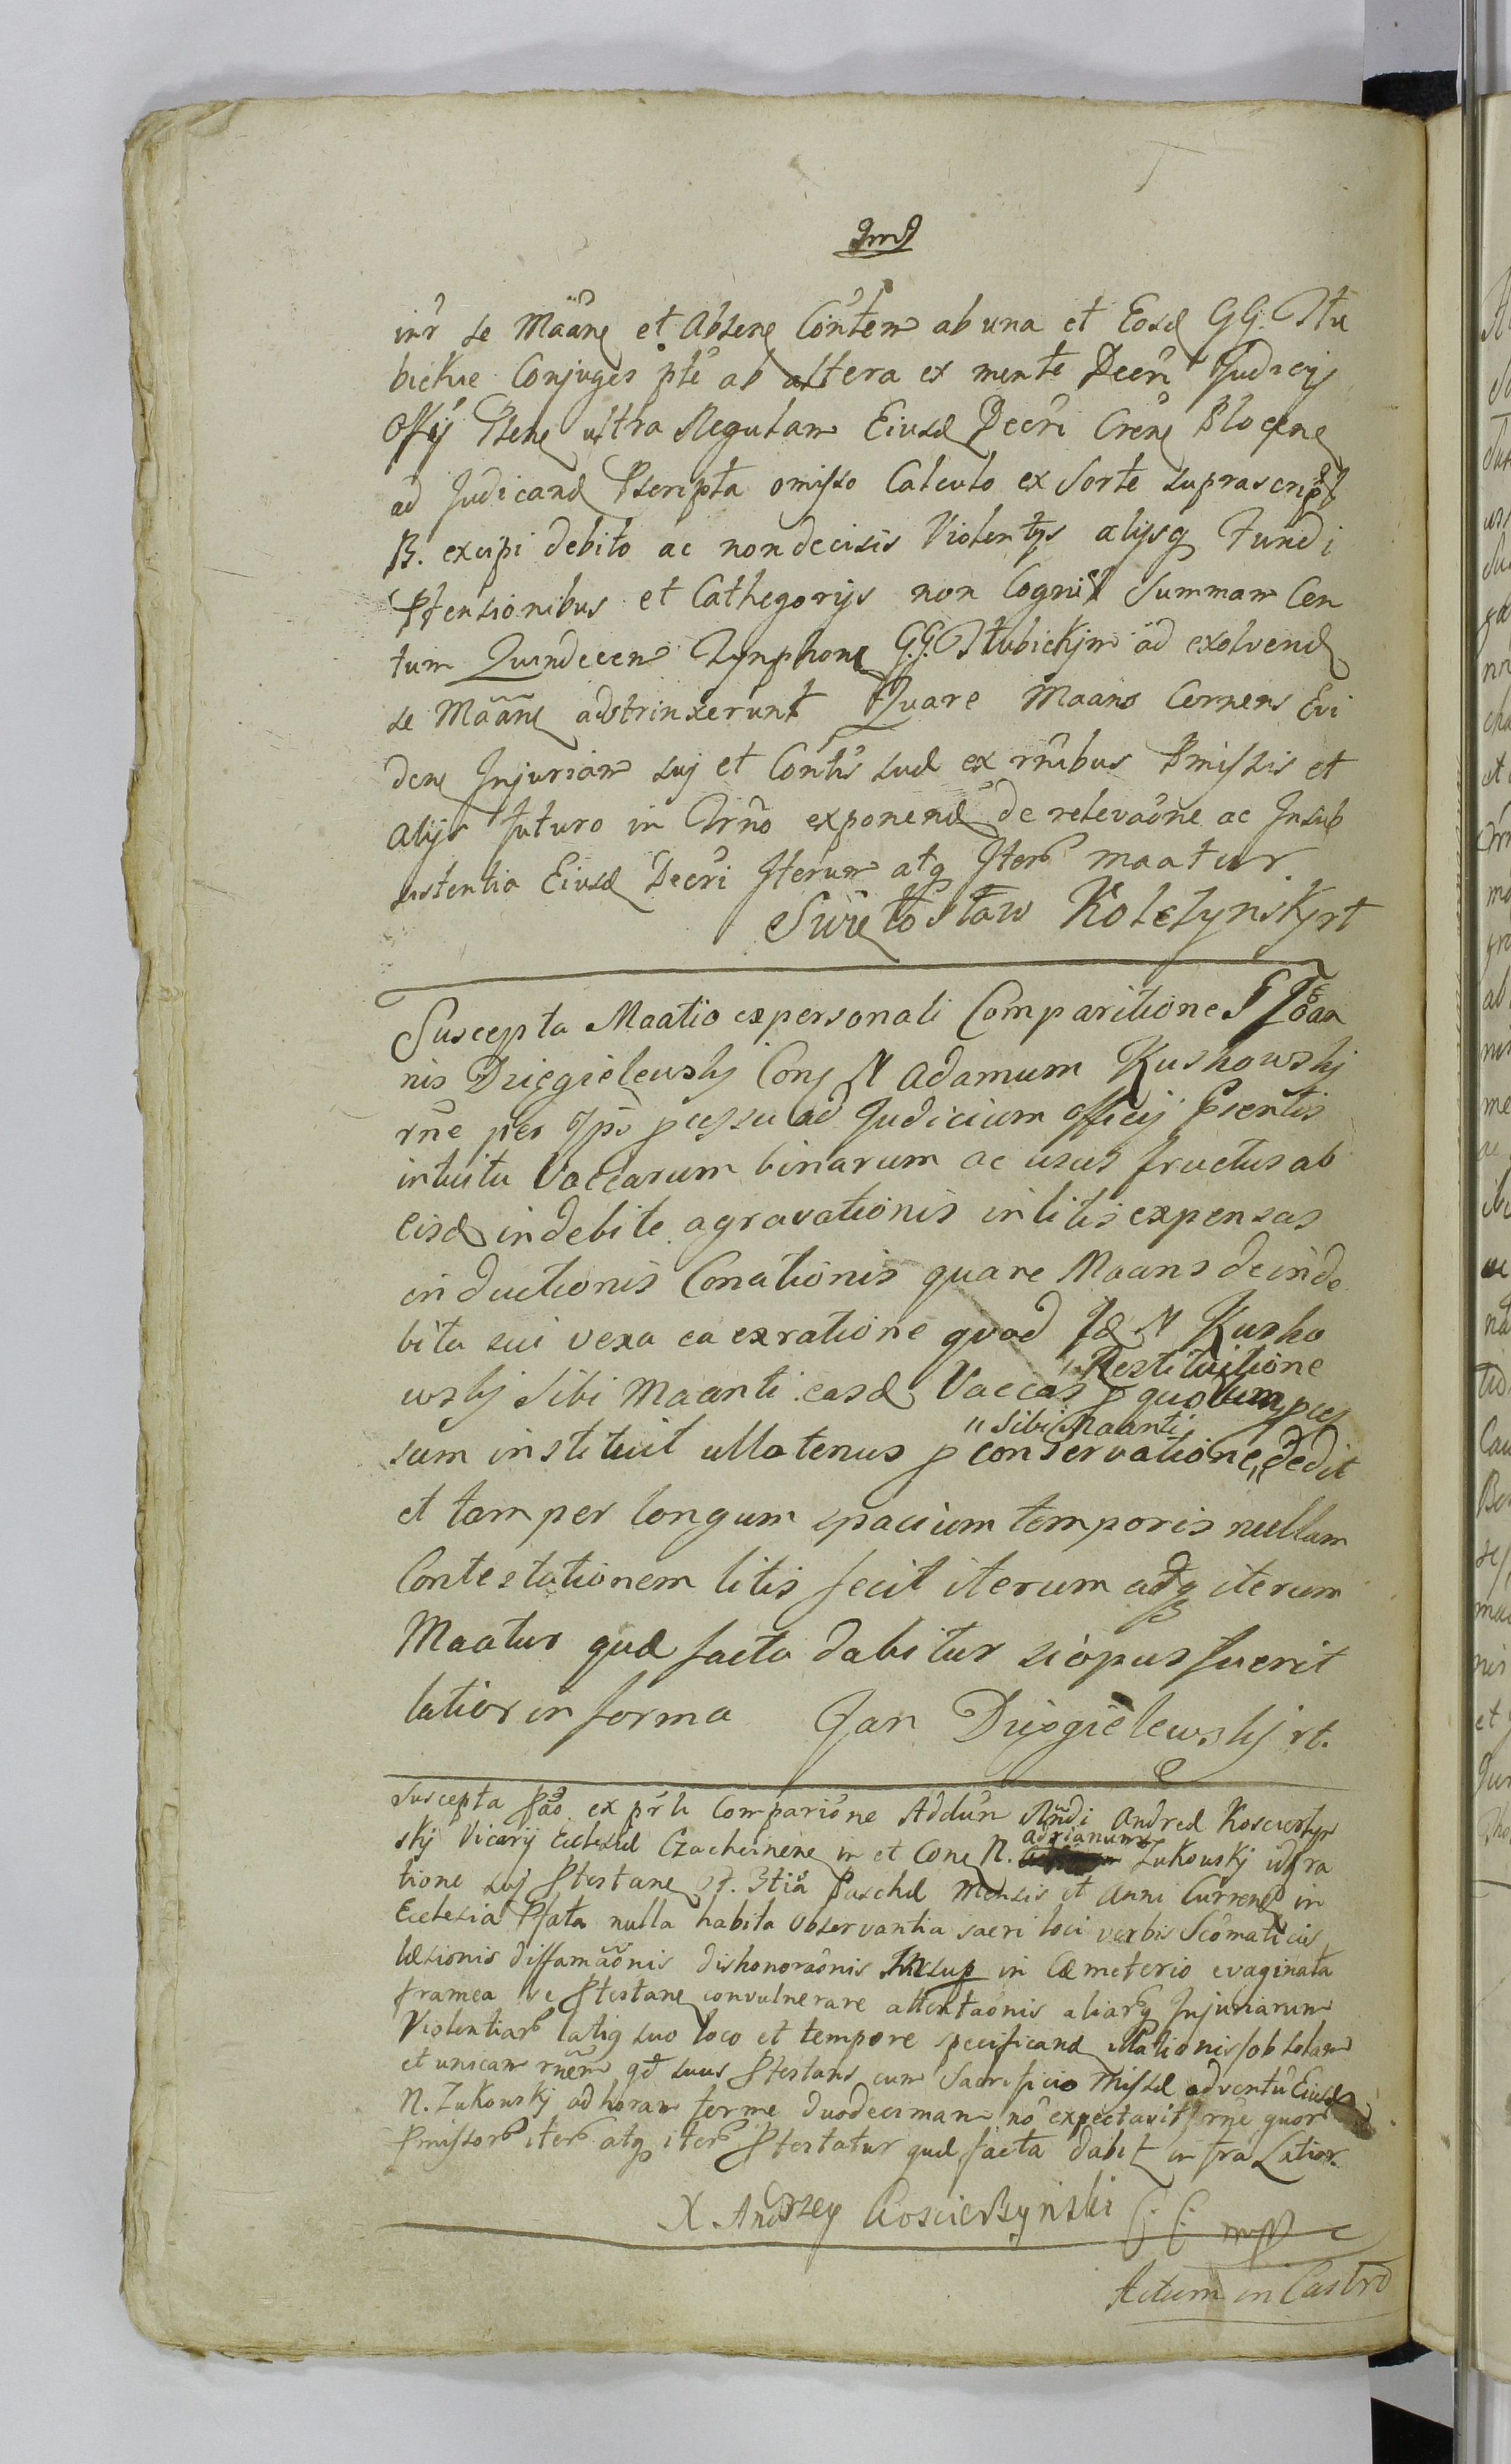 inr se Mããne et Absene Contem ab una et Eosd GG. Stu
bickie Conjuges pte ab altera ex mente Decri Judicij
Offij Psene ultra Regulam Eiusd Decri Crene Plocene
ad Judicand Pscripta omisso Calculo ex Sorte suprascript
B. excipi debito ac non decisis Violentijs alijsq Fundi
Ptensionibus et Cathegorijs non Cognit Summam Cen
tum Quindecem Tynphone G.G. Stubickim ad exolvend
se Mããne adstrinxerunt Quare Maans Cernens Evi
dene Injuriam suj et Contis sud ex rnibus Pmissis et
alijs futuro in Trno exponend de relevaone ac Insub
sistentia Eiusd Decri Iterum atq Iter maatur.
Swiętosław Koletynskj rt
Suscepta Maatio ex personali Comparitione G Joan
nis Dzięgielewskj Conj N Adamum Kuskowskj
rñe per Ipm pcessu ad Judicium Officij Psentis
intuitu Vaccarum binarum ac usus fructus ab
eisd indebite agravationis in litis expensas
inductionis Conationis quare Maans de inde
bita sui vexa ea ex ratione quod Id N Kusko
wskj sibi Maanti easd Vaccas p quorum pces
" Restituitione
sum instituit ullatenus p conservatione " dedit
" sibi Maanti
et tam per longum spacium temporis nullam
Contestationem litis fecit iterum atq iterum
Maatur qud facta dabitur si opus fuerit
latior in forma Jan Dzięgielewskj rt.
Suscepta Pao ex prli Comparione Addum Rndi Andred Koscierszyn
skj Vicarij Ecclesid Czachcinene in et Cone N. Adrianum Zukowskj id fra
tione suj Ptestane Paschd Mensis et Anni Currene in
Ecclesia Pfata nulla habita Observantia sacri loci verbis Scomaticis
ldsionis diffamãõnis dishonoraonis Insup in Cdmeterio evaginata
framea se Ptestane convulnerare attentaonis aliarq Injuriarum
Violentiar latig suo loco et tempore specificand illationis ob solam
et unicam rnem qd suus Ptestans cum Sacrificio Missd adventu Eiusd
N. Zukowskj ad horam ferme duodeciman no expectavit rne quor
Pmissor iter atq iter Ptestatur qud facta dabit in fra Latior.
X. Andrzey Koscierszynski mp
Actum in Castro